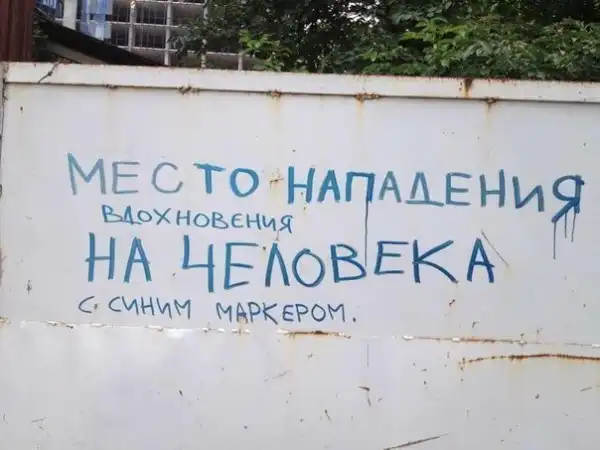 МЕСТО НАПАДЕНИЯ
ВДОХНОВЕНИЯ
НА ЧЕЛОВЕКА
С СИНИМ МАРКЕРОМ.